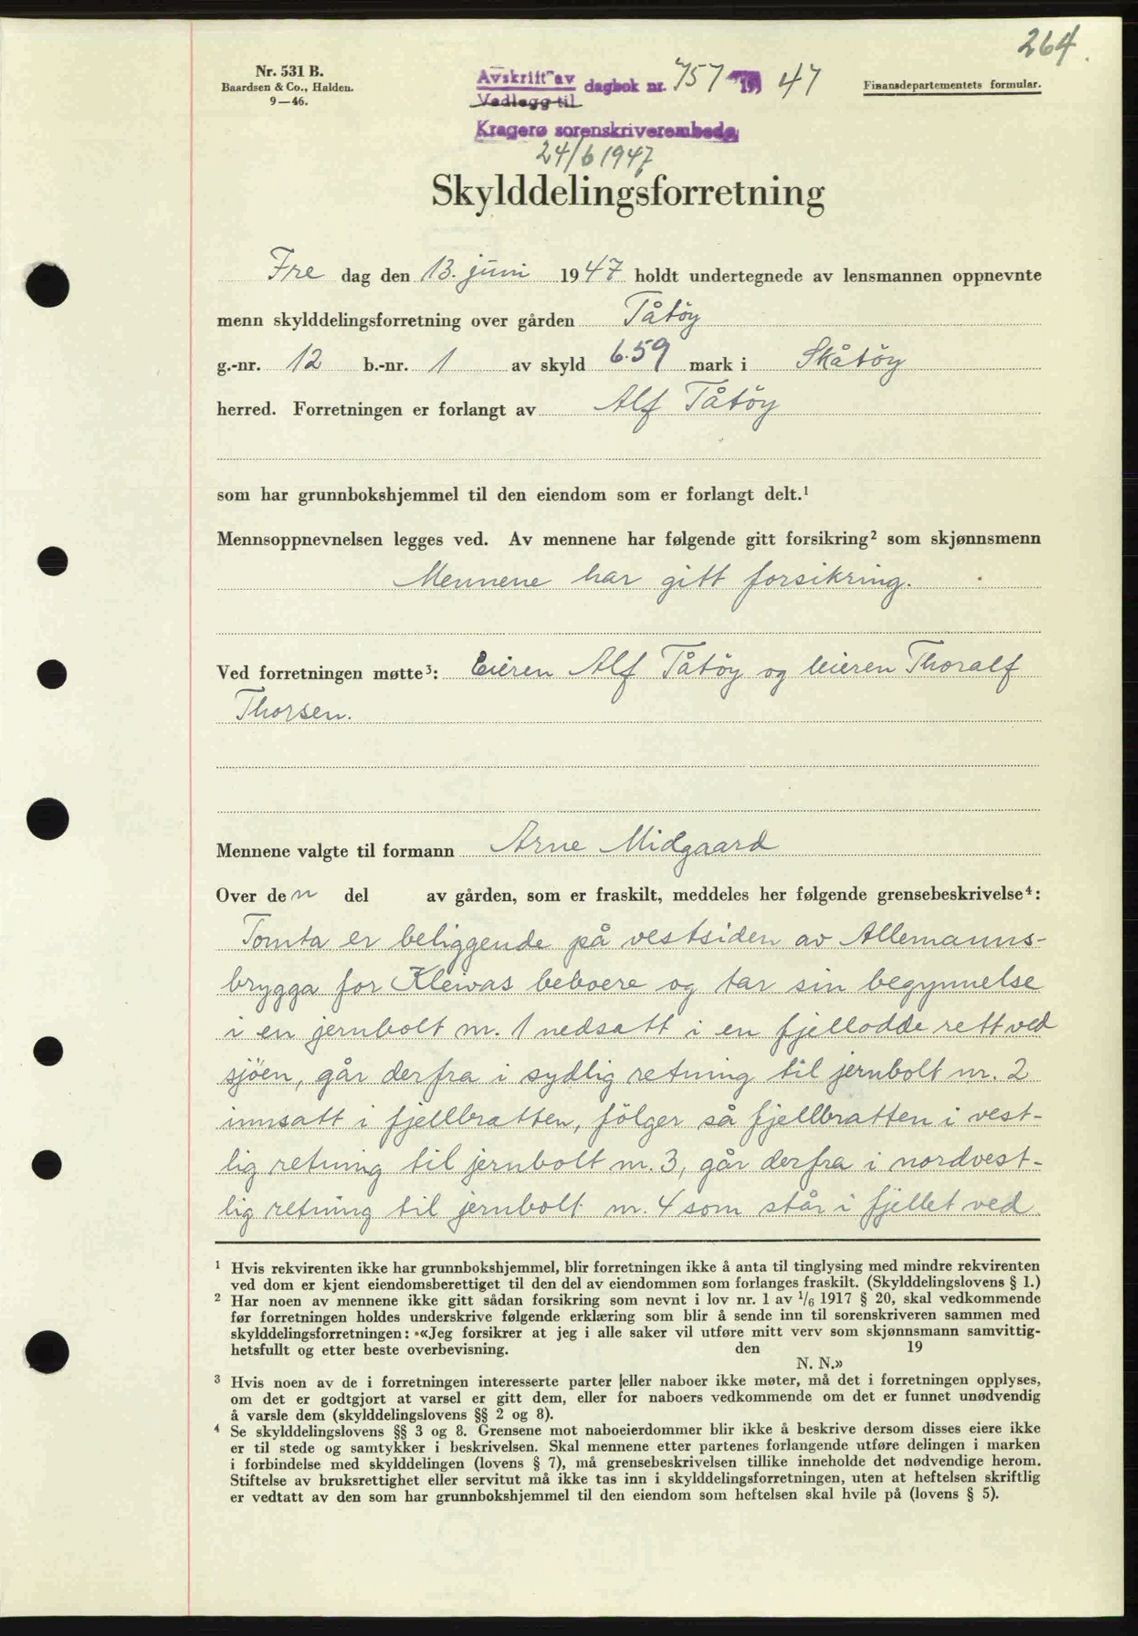 264.
Nr. 531 B.
Baardsen & Co., Halden.
9—46.
Avskrift av
Vedlegg til
dagbok nr. 757 19 47
Kragerø sorenskriverembede
24/6 1947
Finansdepartementets formular.
Skylddelingsforretning
Fre dag den 13. juni 1947 holdt undertegnede av lensmannen oppnevnte
menn skylddelingsforretning over gården Tåtöy
g.-nr. 12 b.-nr. 1 av skyld 6.59 mark i Skåtöy
herred. Forretningen er forlangt av Alf Tåtöy
som har grunnbokshjemmel til den eiendom som er forlangt delt.¹
Mennsoppnevnelsen legges ved. Av mennene har følgende gitt forsikring² som skjønnsmenn
Mennene har gitt forsikring.
Ved forretningen møtte³: Eieren Alf Tåtöy og leieren Thoralf
Thorsen.
Mennene valgte til formann Arne Midgaard
Over den del av gården, som er fraskilt, meddeles her følgende grensebeskrivelse⁴:
Tomta er beliggende på vestsiden av Allemanns-
brygga for Klewas beboere og tar sin begynnelse
i en jernbolt nr. 1 nedsatt i en fjellodde rett ved
sjöen, går derfra i sydlig retning til jernbolt nr. 2
innsatt i fjellbratten, fölger så fjellbratten i vest-
lig retning til jernbolt nr. 3, går derfra i nordvest-
lig retning til jernbolt nr. 4 som står i fjellet ved
¹ Hvis rekvirenten ikke har grunnbokshjemmel, blir forretningen ikke å anta til tinglysing med mindre rekvirenten
ved dom er kjent eiendomsberettiget til den del av eiendommen som forlanges fraskilt. (Skylddelingslovens § 1.)
² Har noen av mennene ikke gitt sådan forsikring som nevnt i lov nr. 1 av 1/6 1917 § 20, skal vedkommende
før forretningen holdes underskrive følgende erklæring som blir å sende inn til sorenskriveren sammen med
skylddelingsforretningen: «Jeg forsikrer at jeg i alle saker vil utføre mitt verv som skjønnsmann samvittig-
hetsfullt og etter beste overbevisning. den 19
N. N.»
³ Hvis noen av de i forretningen interesserte parter eller naboer ikke møter, må det i forretningen opplyses,
om det er godtgjort at varsel er gitt dem, eller for naboers vedkommende om det er funnet unødvendig
å varsle dem (skylddelingslovens §§ 2 og 8).
⁴ Se skylddelingslovens §§ 3 og 8. Grensene mot naboeierdommer blir ikke å beskrive dersom disses eiere ikke
er til stede og samtykker i beskrivelsen. Skal mennene etter partenes forlangende utføre delingen i marken
i forbindelse med skylddelingen (lovens § 7), må grensebeskrivelsen tillike inneholde det nødvendige herom.
Stiftelse av bruksrettighet eller servitut må ikke tas inn i skylddelingsforretningen, uten at heftelsen skriftlig
er vedtatt av den som har grunnbokshjemmel til den eiendom som heftelsen skal hvile på (lovens § 5).